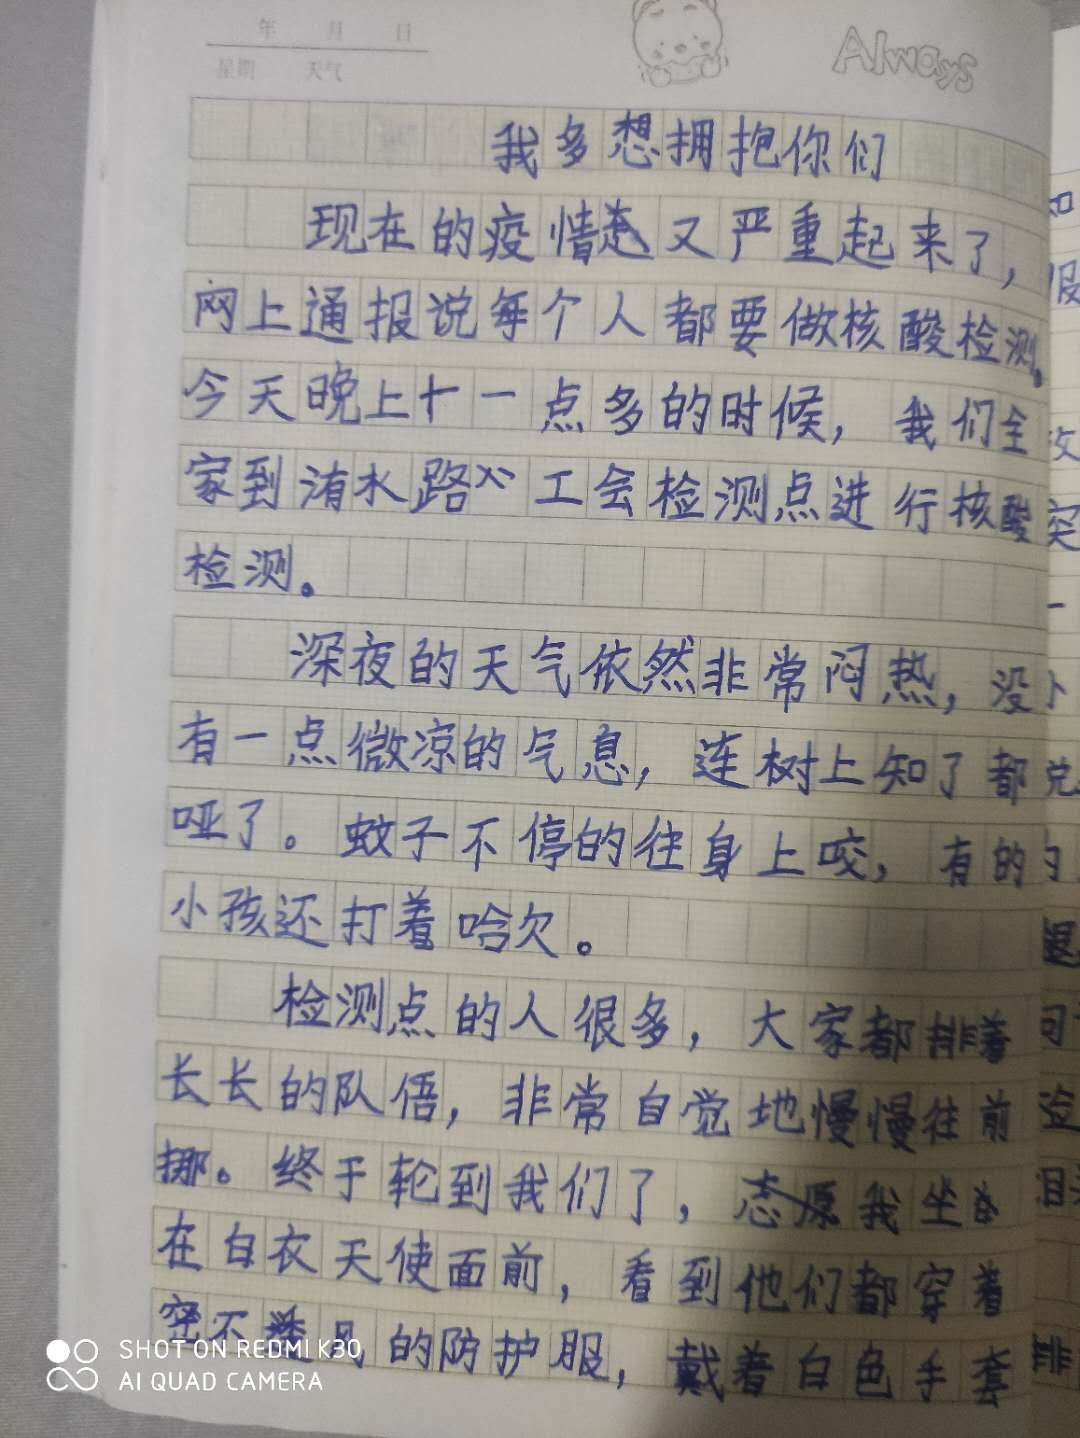 年 月 日
星期 天气
Always
我多想拥抱你们
现在的疫情又严重起来了，
网上通报说每个人都要做核酸检测。
今天晚上十一点多的时候，我们全
家到洧水路工会检测点进行核酸
检测。
深夜的天气依然非常闷热，没
有一点微凉的气息，连树上知了都
哑了。蚊子不停的往身上咬，有的
小孩还打着哈欠。
检测点的人很多，大家都排着
长长的队伍，非常自觉地慢慢往前
挪。终于轮到我们了，我坐
在白衣天使面前，看到他们都穿着
密不透风的防护服，戴着白色手套
SHOT ON REDMI K30
AI QUAD CAMERA